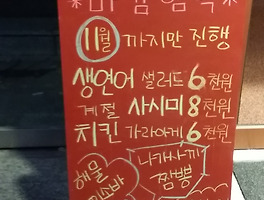 11월 까지만 진행
생연어 샐러드 6천원
계절 사시미 8천원
치킨 가라아게 6천원
나가사끼
짬뽕
해물